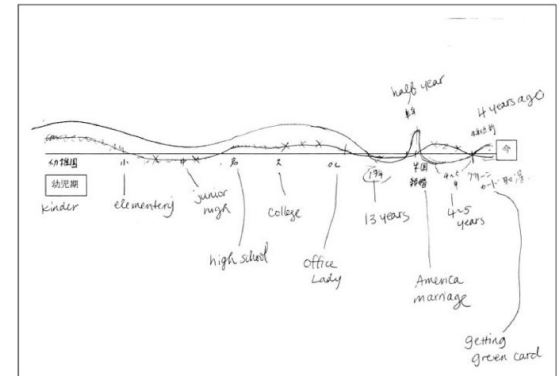 half year
半年
4 years ago
4年前
今
幼稚園
小
中
高
大
OL
13年
米国
結婚
幼児期
グリーン
カード取得
kinder
elementery
junior
high
high school
college
office
Lady
13 years
4~5
years
America
marriage
getting
green card